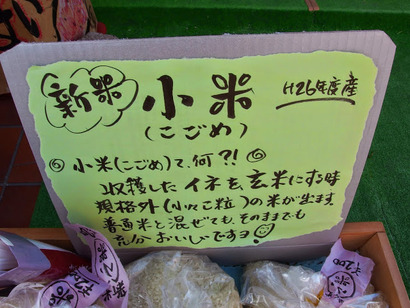 新米
小米
H26年度産
(こごめ)
小米(こごめ)て、何?!
収穫したイネを、玄米にする時
規格外(小いこ粒)の米が出ます。
普通米と混ぜても、そのままでも
充分おいしいですョ!